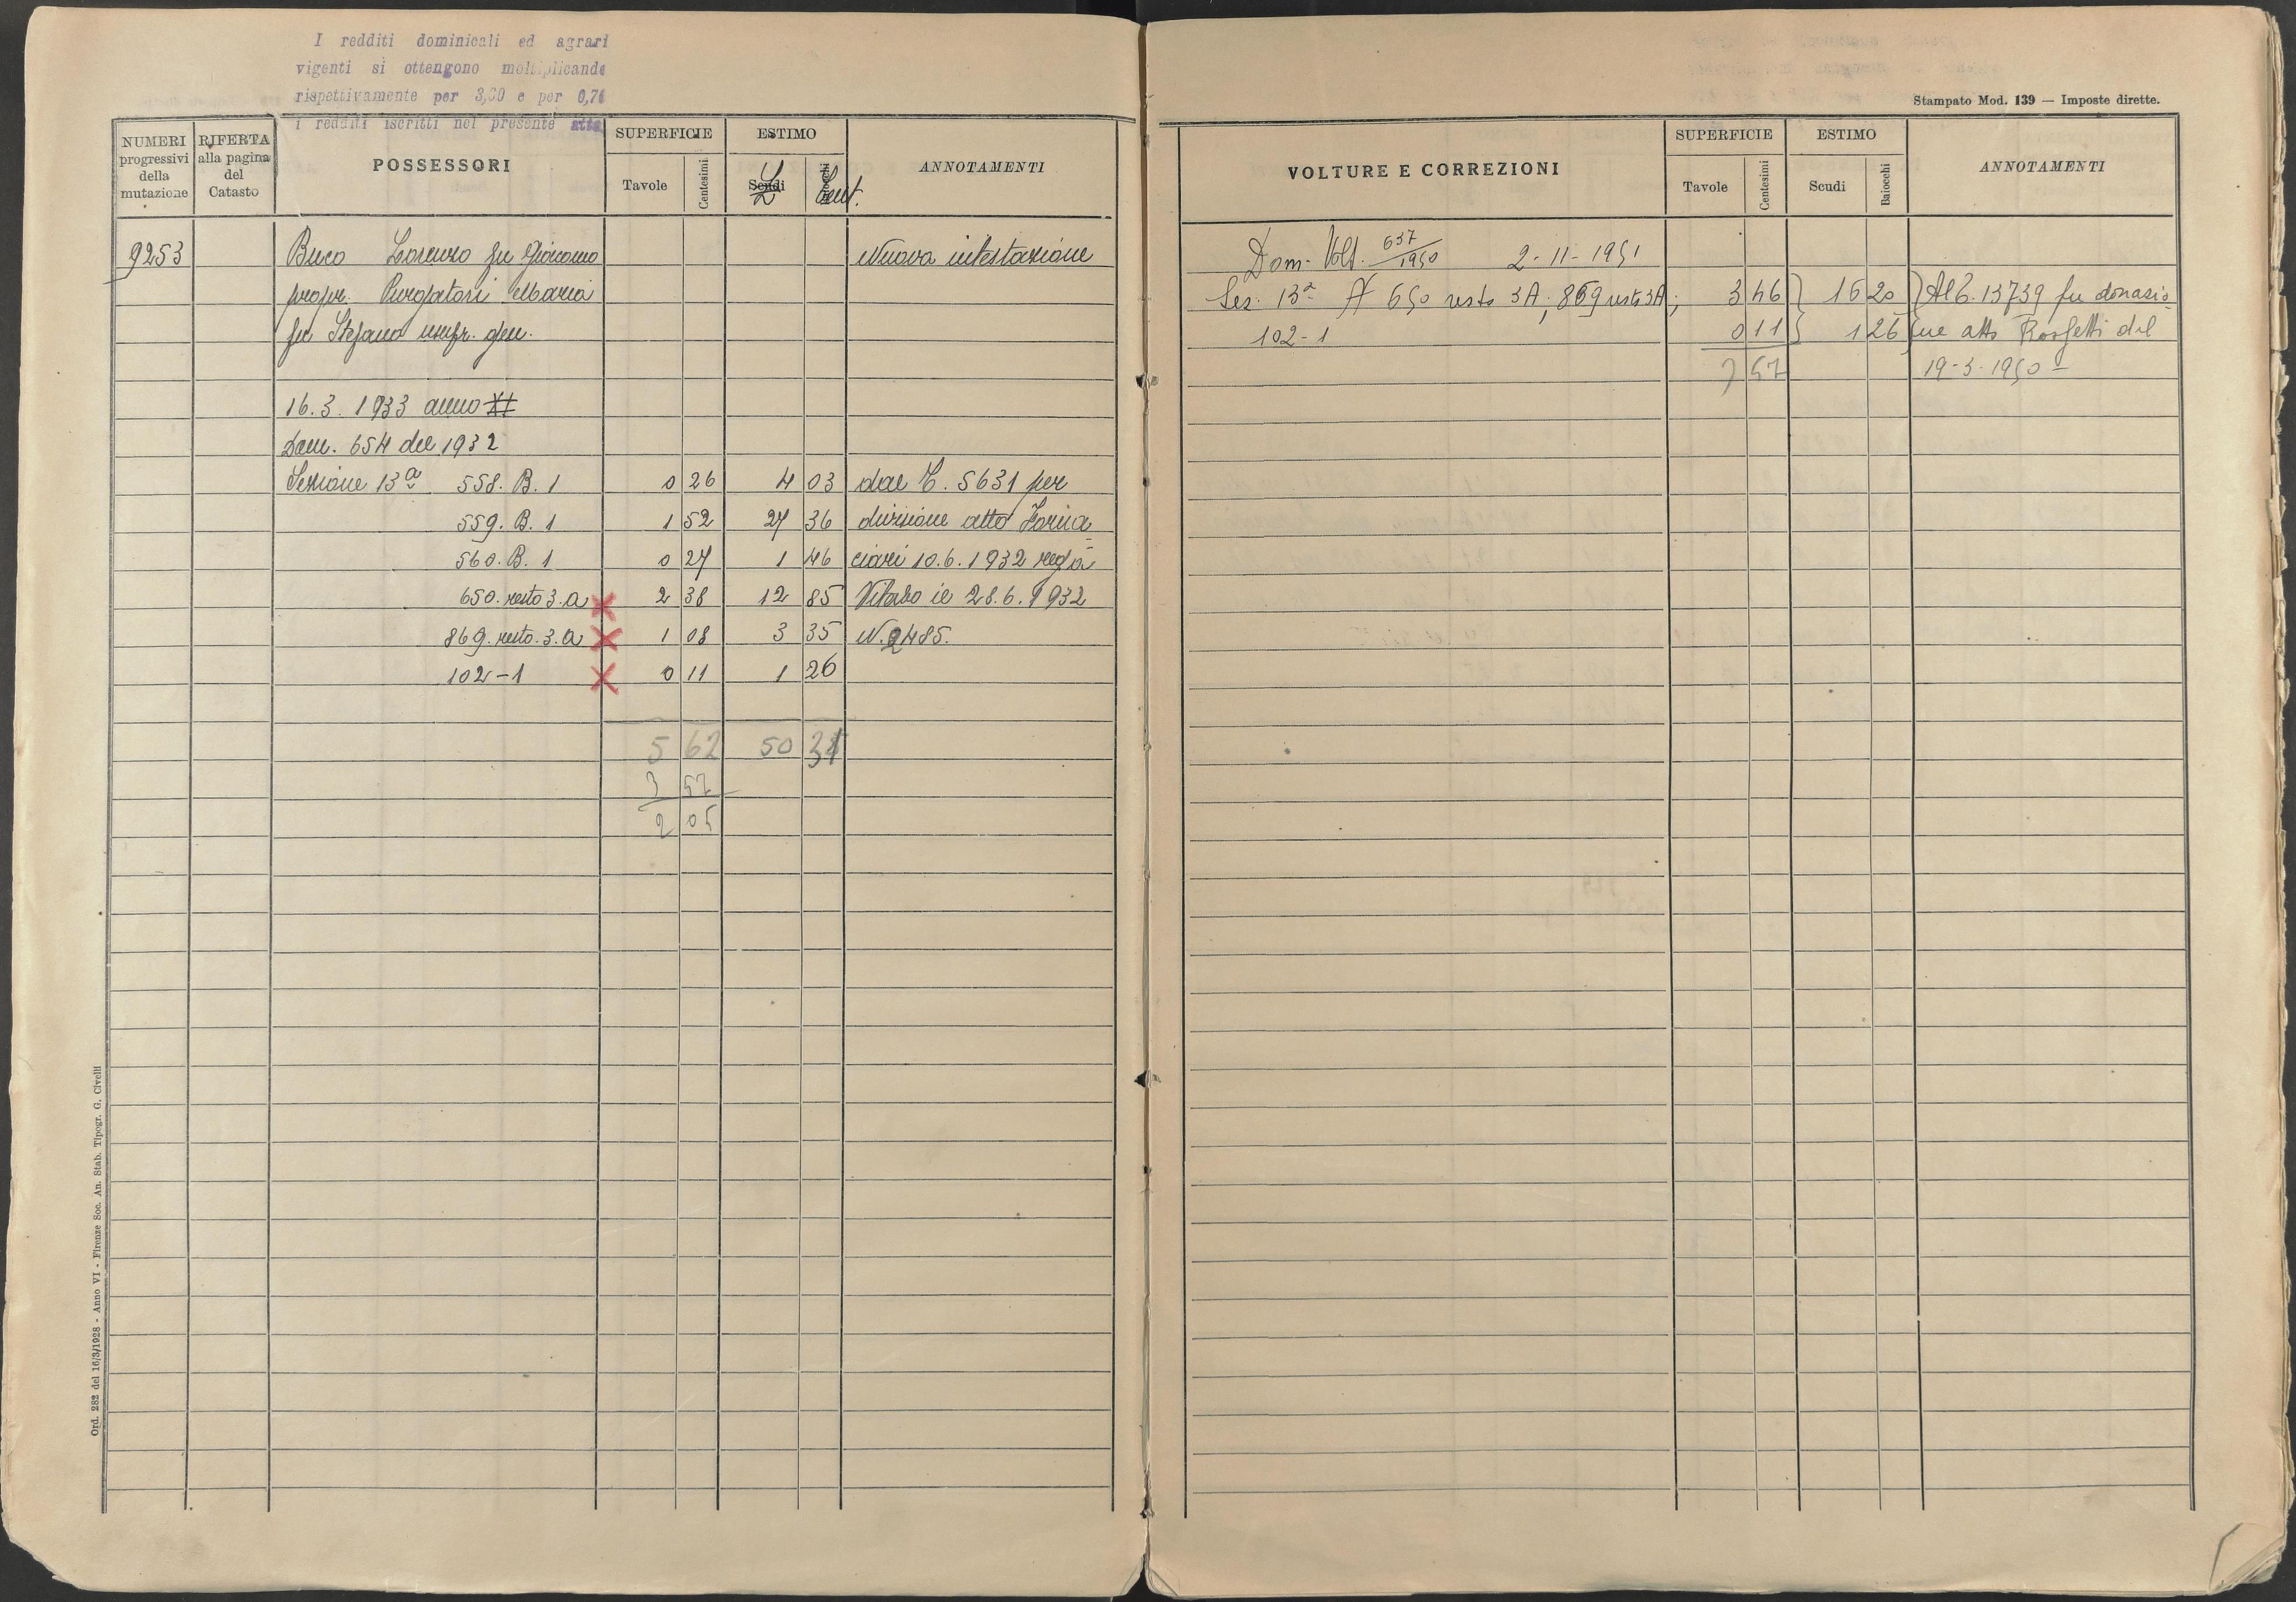 I redditi dominicali ed agrari
vigenti si ottengono moltiplicando
rispettivamente per 3,30 e per 0,74
i redditi iscritti nel presente atto
NUMERI progressivi della mutazione
RIFERTA alla pagina del Catasto
POSSESSORI
SUPERFICIE
Tavole Centesimi
ESTIMO
Scudi Baiocchi
L Cent.
ANNOTAMENTI
9253 Buco Lorenzo fu Giacomo Nuova intestazione
propr. Purgatori Maria
fu Stefano usufr. gen.
16.3.1933 anno XI
Dom. 654 del 1932
Sezione 13ª 558. B. 1 0 26 4 03 dal C. 5631 per
559. B. 1 1 52 27 36 divisione atto Forna
560. B. 1 0 27 1 46 ciari 10.6.1932 reg. a
650. resto 3. A 2 38 12 85 Viterbo il 28.6.1932
869. resto. 3. A 1 08 3 35 N. 2485.
102-1 0 11 1 26
5 62 50 31
3 57
2 05
Ord. 282 del 16/3/1928 - Anno VI - Firenze Soc. An. Stab. Tipogr. G. Civelli
Stampato Mod. 139 — Imposte dirette.
VOLTURE E CORREZIONI
SUPERFICIE
Tavole Centesimi
ESTIMO
Scudi Baiocchi
ANNOTAMENTI
Dom. Volt. 637/1950 2-11-1951
Sez. 13ª N 650 resto 3A; 869 resto 3A; 3 46 16 20 Al C. 13739 fu donazio
102-1 0 11 1 26 ne atto Rossetti del
3 57 19-3-1950